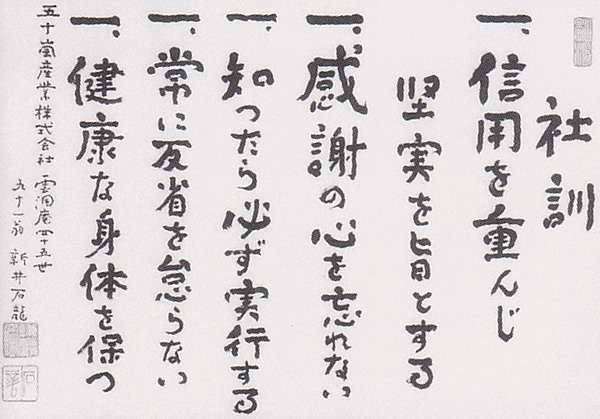 社訓
一、信用を重んじ
堅実を旨とする
一、感謝の心を忘れない
一、知ったら必ず実行する
一、常に反省を怠らない
一、健康な身体を保つ
五十嵐産業株式会社 雲洞庵四十五世
九十一翁 新井石龍